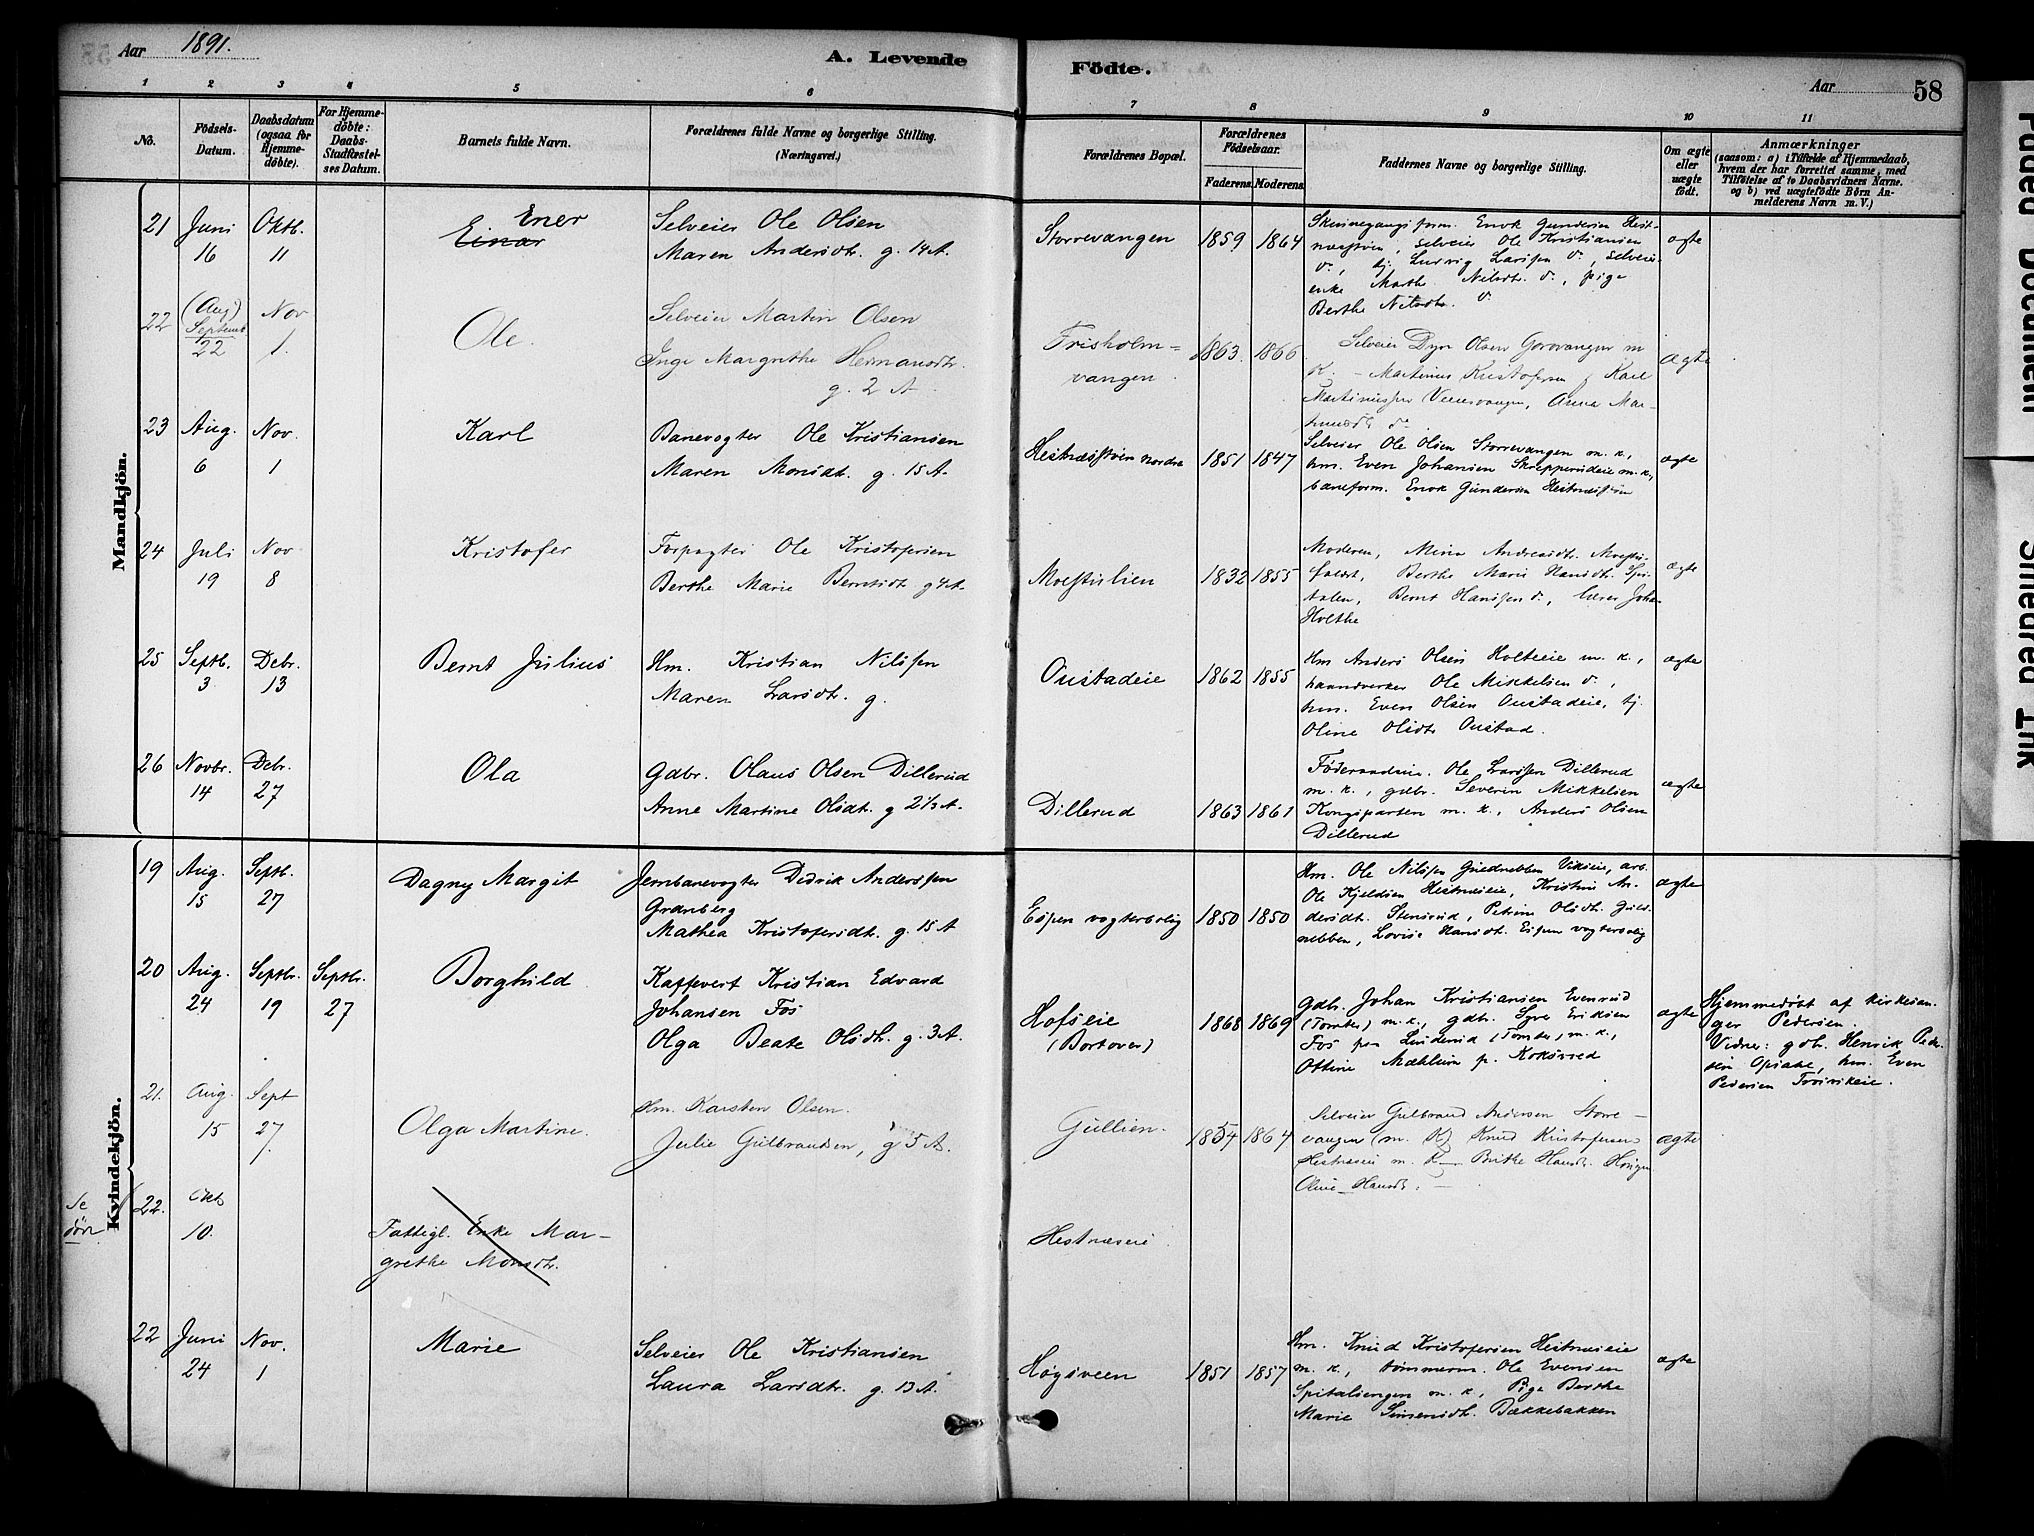 Aar 1891.
A. Levende Födte.
Aar 58
1 2 3 4 5 6 7 8 9 10 11
No.
Födsels-
Datum.
Daabsdatum
(ogsaa for
Hjemme-
döbte).
For Hjemme-
döbte:
Daabs-
Stadfæstel-
ses Datum.
Barnets fulde Navn.
Forældrenes fulde Navne og borgerlige Stilling.
(Næringsvei.)
Forældrenes Bopæl.
Forældrenes
Födselsaar.
Faderens Moderens
Faddernes Navne og borgerlige Stilling.
Om ægte
eller
uægte
födt.
Anmærkninger
(saasom: a) i Tilfælde af Hjemmedaab,
hvem der har forrettet samme, med
Tilföielse af to Daabsvidners Navne.
og b) ved uægtefödte Börn An-
melderens Navn m. V.)
Mandkjön.
21 Juni 16 Oktb. 11
Ener
Einar
Selveier Ole Olsen
Maren Andersdtr. g. 14 A.
Storrevangen 1859 1864
Enok Gundersen
selveier Ole Kristiansen
d., tj. Ludvig Larssen d., selveier-
enke Marthe Nilsdtr. d., pige
Berthe Nilsdtr. d.
ægte
22 (Aug) Septemb 22 Nov 1.
Ole.
Selveier Martin Olsen
Inge Margrethe Hermansdtr.
g. 2 A
Frisholm=
vangen. 1863. 1866
Selveier Olsen m
K. – Martinius Kristofersen, Karl
Anna Mar-
ægte
23 Aug. 6 Nov. 1
Karl
Banevogter Ole Kristiansen
Maren Monsdt. g. 15 A.
nordre 1851 1847
Selveier Ole Olsen Storrevangen m. k.,
hm. Even Johansen Skrepperudeie m. k,
baneform. Enok Gundersen
ægte
24 Juli 19 Nov 8
Kristofer
Forpagter Ole Kristofersen
Berthe Marie Berntsdt. g 4 A.
1832 1855
Moderen, Mina Andreasdtr.
Berthe Marie Hansdt. Spi-
talen, Bernt Hanssen d., lærer Joh.
Holthe
ægte
25 Septb. 3 Debr. 13
Bernt Julius
Hm. Kristian Nilssen
Maren Larsdtr. g.
Oustadeie 1862 1855
Hm Anders Olsen Holteeie m. k.,
haandverker Ole Mikkelsen d.,
hm. Even Olsen Oustadeie, tj.
Oline Olsdtr Oustad.
ægte
26 Novbr. 14 Debr. 27
Ola
Gdbr. Olaus Olsen Dillerud
Anne Martine Olsdt. g 2½ A.
Dillerud 1863 1861
Föderaadseie. Ole Larssen Dillerud
m. k., gdbr. Severin Mikkelsen
Kongsparten m. k., Anders Olsen
Dillerud
ægte
Kvindekjön.
19 Aug. 15 Septb. 27
Dagny Margit
Jernbanevogter Didrik Anderssen
Granberg
Mathea Kristofersdt. g. 15 A
Espen vogterbolig 1850 1850
Hm. Ole Nilssen Guldnebben Vikseie, arb.
Ole Kjeldsen Hestnæseie, Kristine An-
dersdt. Stensrud, Petrine Olsdt. Guld-
nebben, Lovise Hansdt. Espen vogterbolig
ægte
20 Aug. 24 Septbr. 19 Septbr. 27
Borghild
Kaffevert Kristian Edvard
Johansen Fos
Olga Beate Olsdtr. g. 3 A.
Hofseie
(Bortover) 1868 1869
Gdb. Johan Kristiansen Evenrud
(Tomter) m. k., gdbr. Syver Eriksen
Fos paa Linderud (Tomter, m. k.,
Ottine Mæhlum p. Koksrud
ægte
Hjemmedöbt af kirkesan-
ger Pedersen.
Vidner: gdb. Henrik Peder-
sen Opsahl, hm. Even
Pedersen
21. Aug. 15 Sept 27.
Olga Martine.
Hm. Karsten Olsen.
Julie Gulbrandsen, g 5 A.
Gullien. 1854 1864
Selveier Gulbrand Andersen Storre-
vangen (m. K) Knud Kristofersen
Hestnæseie m. K — Berthe Hansdtr.
Oline Hansdt.
ægte
Se
döde
22. Okt 10.
Fattigl. Enke Mar-
grethe Monsdtr.
Hestnæseie.
22 Juni 24 Nov. 1
Marie
Selveier Ole Kristiansen
Laura Larsdtr. g. 13 A.
Högsveen 1851 1857
Hm. Knud Kristofersen Hestnæseie
m. k., tömmerm. Ole Evensen
Spitalsengen m. k., Pige Berthe
Marie Simensdt. Bækkebakken
ægte
Faded Document
Smeared Ink